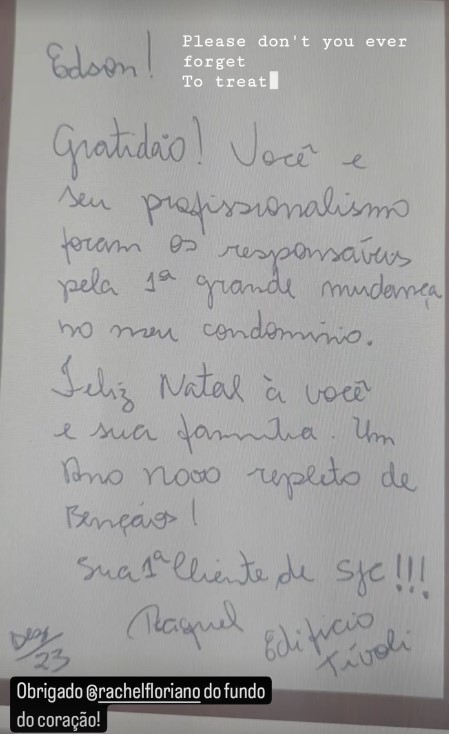 Edson!
Please don't you ever
forget
To treat
Gratidão! Você e
seu profissionalismo
foram os responsáveis
pela 1ª grande mudança
no meu condomínio.
Feliz Natal à você
e sua família. Um
Ano novo repleto de
Bençãos!
Sua 1ª Cliente de SJC!!!
Raquel
Edifício
Tívoli
Dez/23
Obrigado @rachelfloriano do fundo
do coração!